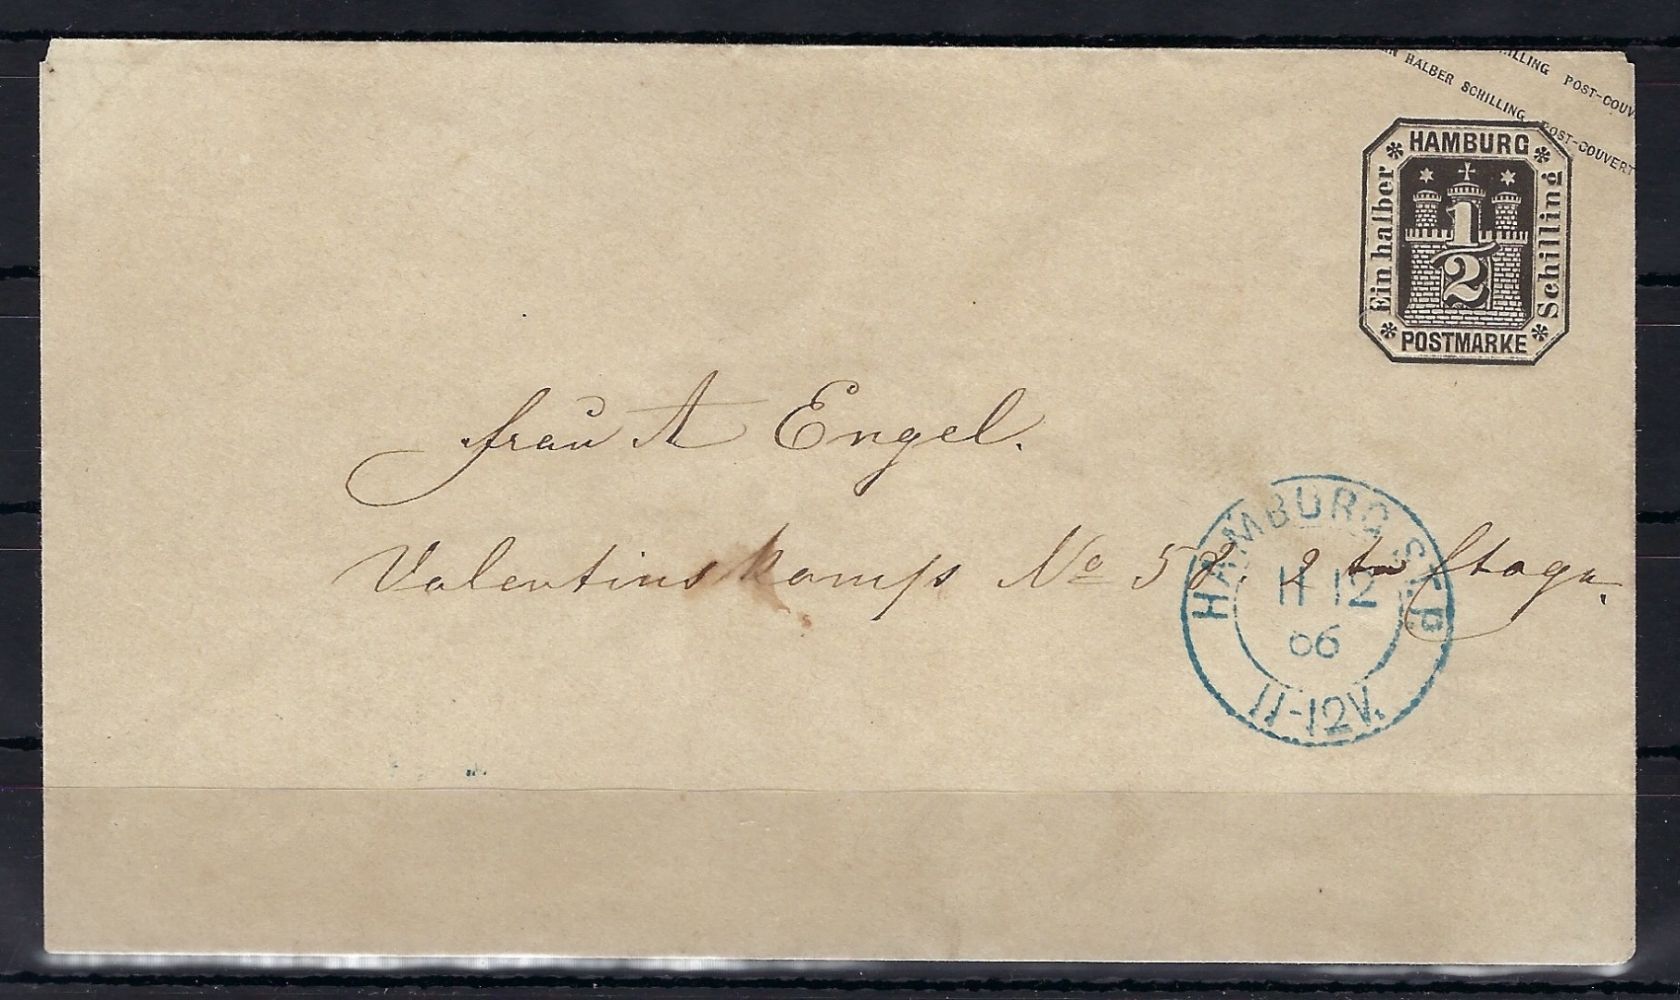 HILLING POST-COUV
N HALBER SCHILLING POST-COUVERT
HAMBURG
Ein halber
1/2
Schilling
POSTMARKE
Frau A Engel.
Valentinskamp No 52 2 te Etage.
HAMBURG ST.P.
11 12
66
11-12V.